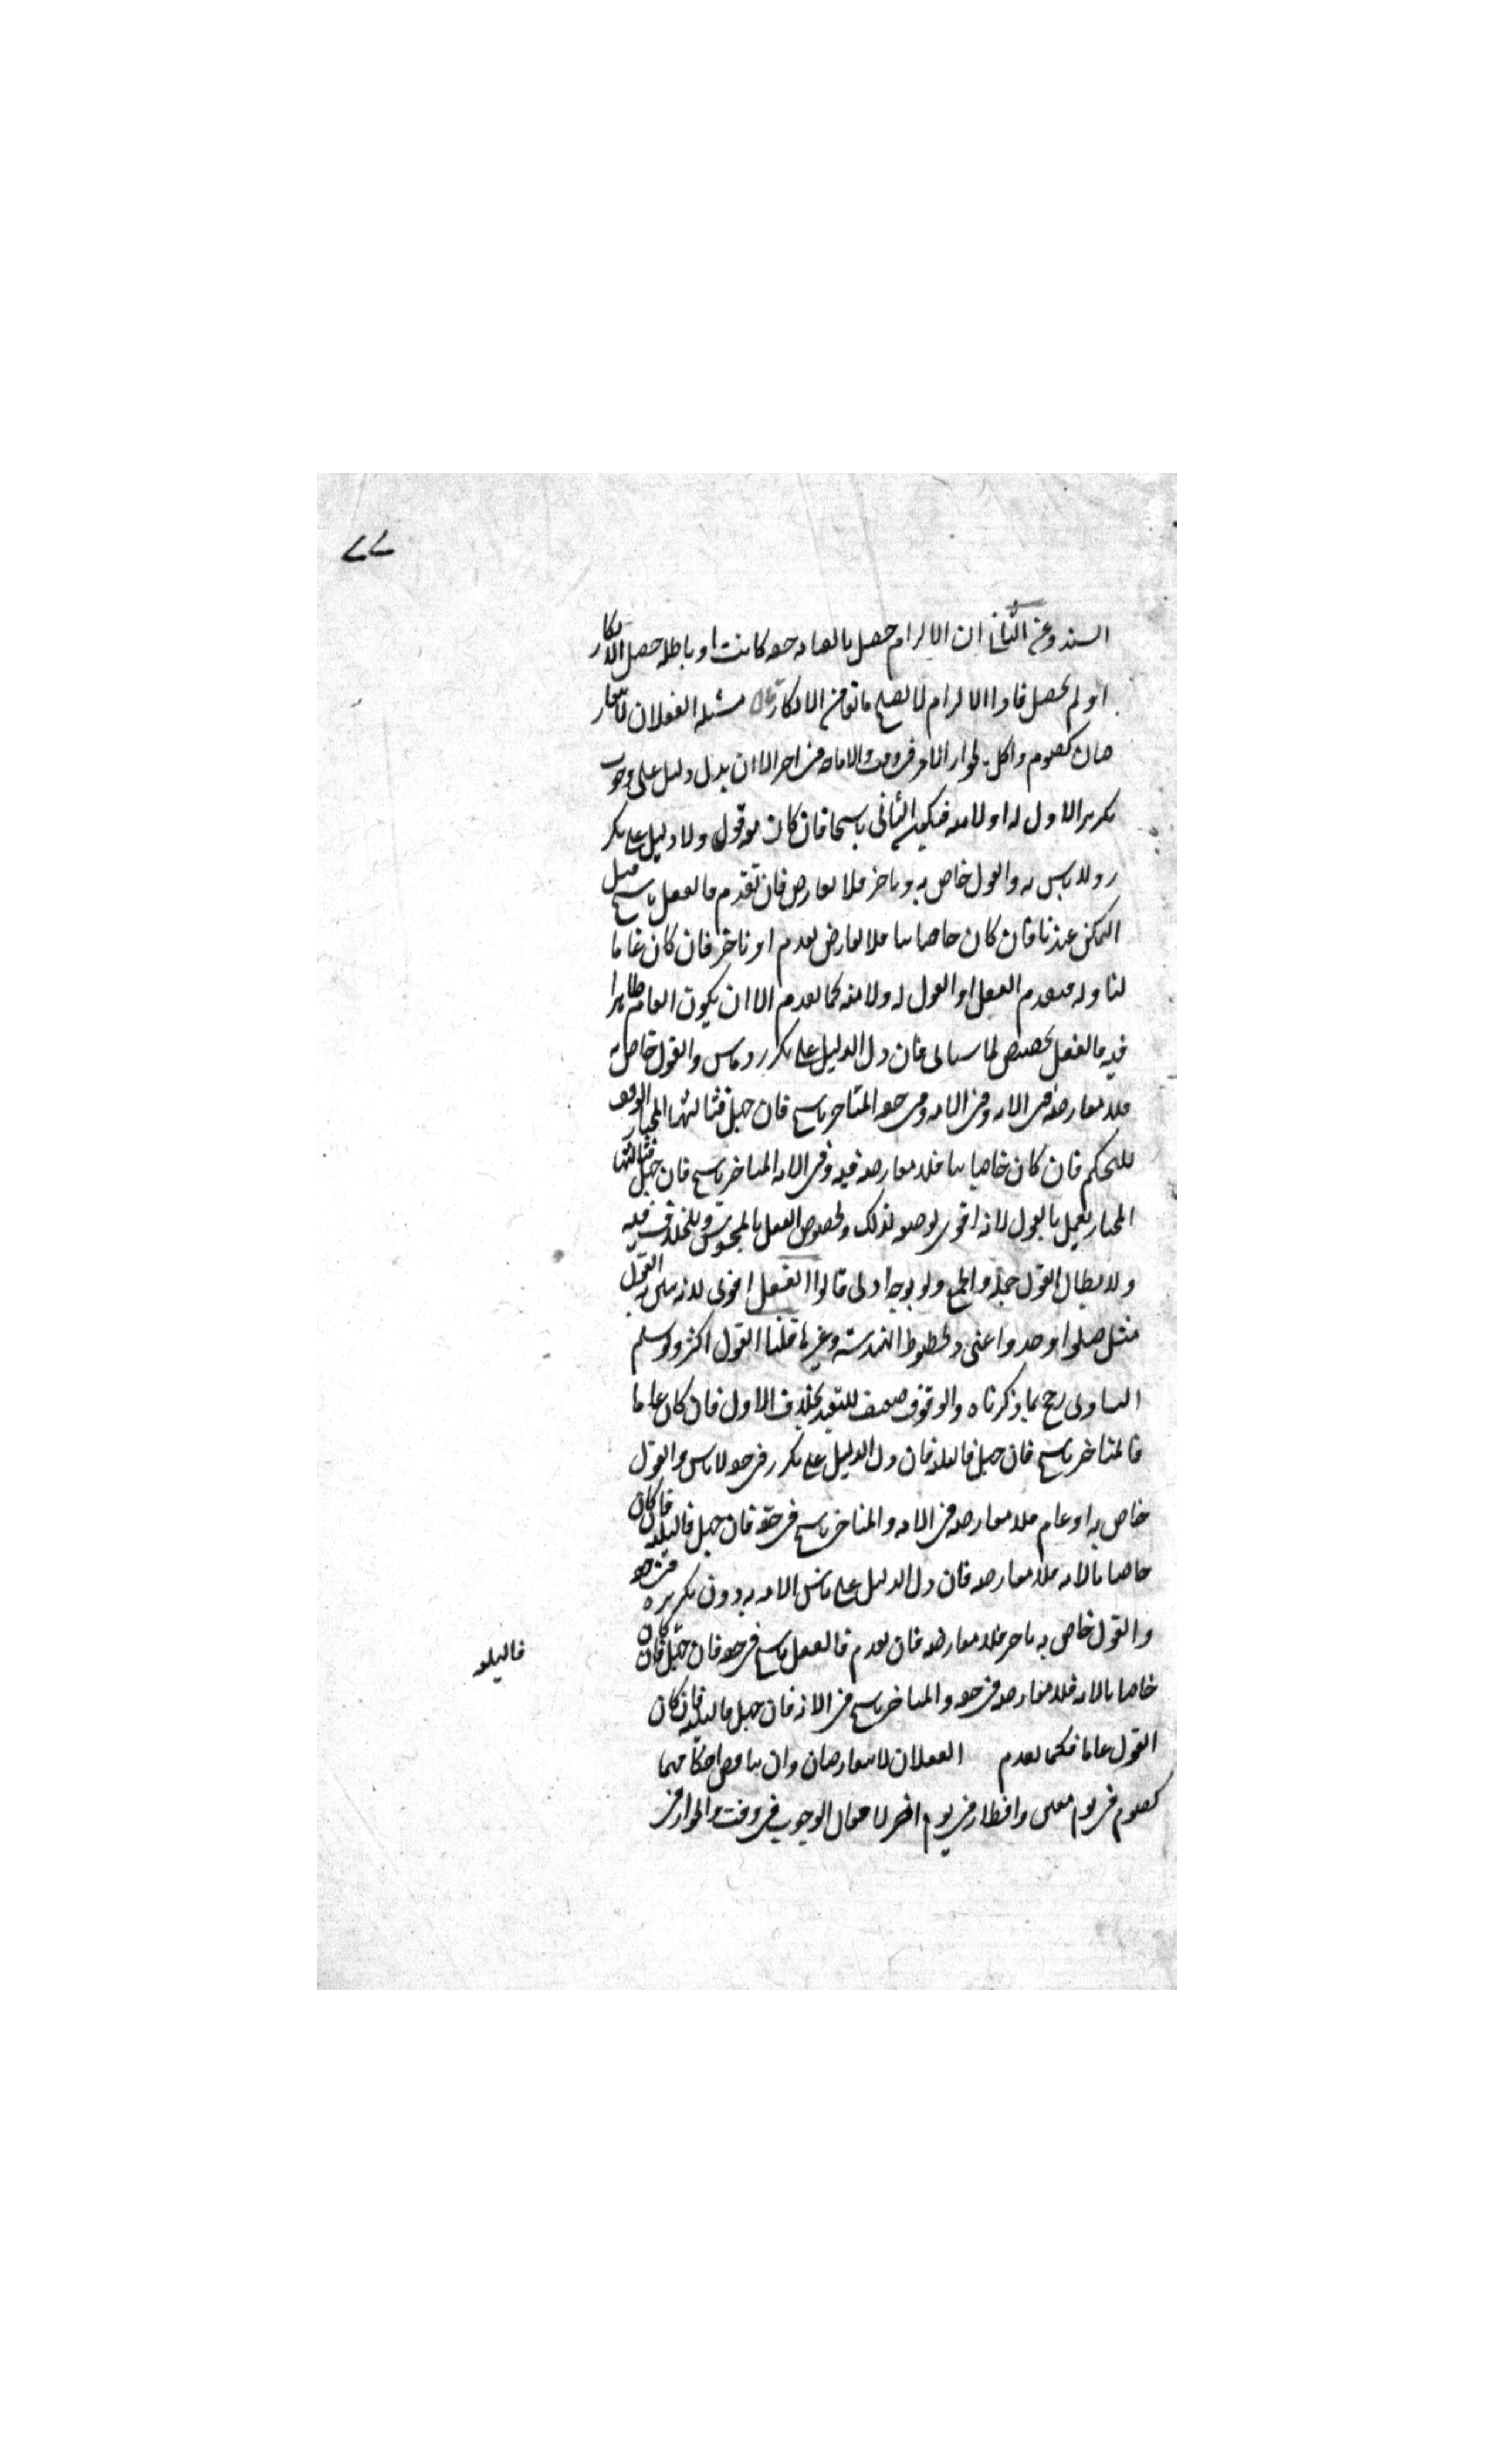 السند وعن الثاني ان الالزام حصل بالقيافة حقة كانت او باطلة حصل الانكار
او لم يحصل فاذا الالزام لا يصلح مانعا من الانكار مسئلة الفعلان لا يتعار
ضان كصوم واكل لجواز الامر في وقت والاباحة في اخر الا ان يدل دليل على وجوب
تكرير الاول له او لامته فيكون الثاني ناسخا فان كان معه قول ولا دليل على تكر
ر ولا تاس به والقول خاص به وتاخر فلا تعارض فان تقدم فالفعل ناسخ قبل
التمكن عندنا فان كان خاصا بنا فلا تعارض تقدم او تاخر فان كان عاما
لنا وله فتقدم الفعل او القول له ولامته كما تقدم الا ان يكون العام ظاهرا
فيه فالفعل تخصيص لما سياتي فان دل الدليل على تكرر وتاس والقول خاص به
فلا معارضة في الامة وفي حقه المتاخر ناسخ فان جهل فثالثها المختار الوقف
للتحكم فان كان خاصا بنا فلا معارضة فيه وفي الامة المتاخر ناسخ فان جهل فثالثها
المختار يعمل بالقول لانه اقوى لوضعه لذلك ولخصوص الفعل بالمحسوس وللخلاف فيه
ولابطال القول جملة والجمع ولو بوجه اولى قالوا الفعل اقوى لانه يتبين به القول
مثل صلوا وخذوا عني وكخطوط الهندسة وغيرها قلنا القول اكثر ولو سلم
التساوي رجح بما ذكرناه والوقف ضعيف للتعبد بخلاف الاول فان كان عاما
فالمتاخر ناسخ فان جهل فالثلاثة فان دل الدليل على تكرر في حقه لا تاس والقول
خاص به او عام فلا معارضة في الامة والمتاخر ناسخ في حقه فان جهل فالثلاثة فان كان
خاصا بالامة فلا معارضة فان دل الدليل على تاسي الامة به دون تكرره في حقه
والقول خاص به وتاخر فلا معارضة فان تقدم فالفعل ناسخ في حقه فان جهل فالثلاثة فان كان
خاصا بالامة فلا معارضة في حقه والمتاخر ناسخ في الامة فان جهل فالثلاثة فان كان
القول عاما فكما تقدم الفعلان لا يتعارضان وان تناقض احكامهما
كصوم في يوم معين وافطار في يوم اخر لاحتمال الوجوب في وقت والجواز في